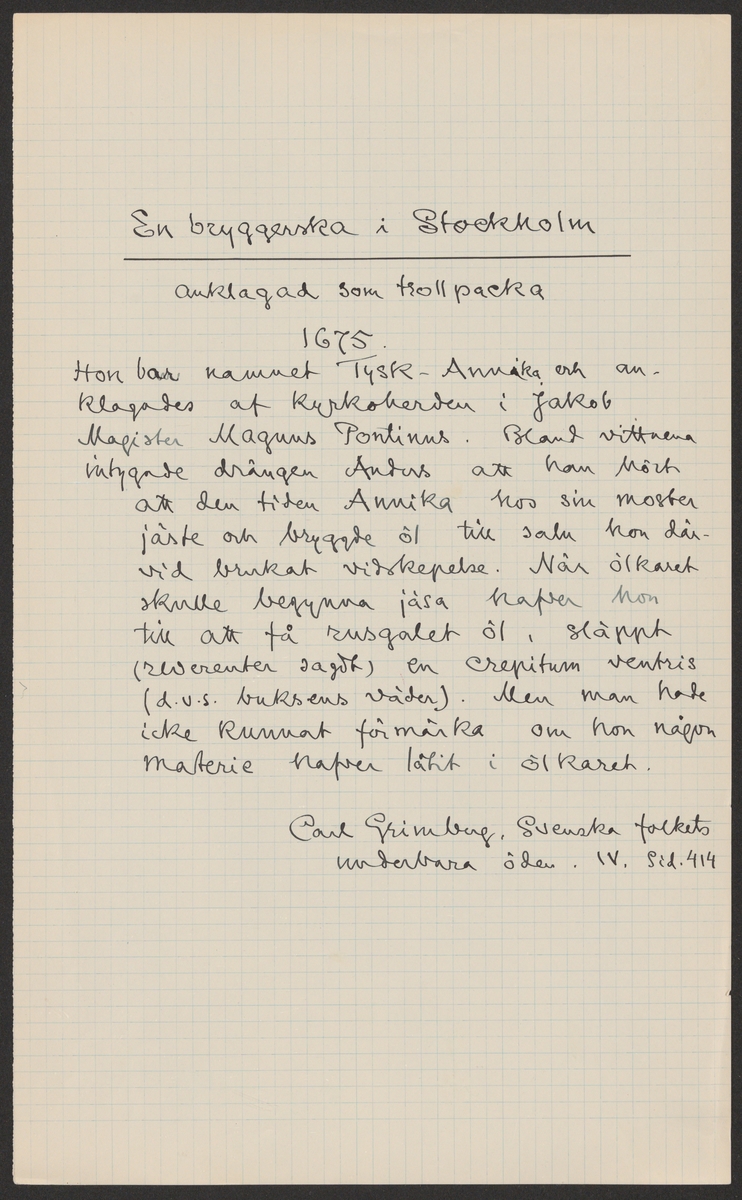 En bryggerska i Stockholm
anklagad som trollpacka
1675.
Hon bar namnet Tysk-Annika och an-
klagades af kyrkoherden i Jakob
Magister Magnus Pontinus. Bland vittnena
intygade drängen Anders att han hört
att den tiden Annika hos sin moster
jäste och bryggde öl till salu hon där-
vid brukat vidskepelse. När ölkaret
skulle begynna jäsa hafver hon
till att få rusgalet öl, släppt
(reverenter sagdt) en crepitum ventris
(d.v.s. buksens väder). Men man hade
icke kunnat förmärka om hon någon
materie hafver låtit i ölkaret.
Carl Grimberg, Svenska folkets
underbara öden. IV. Sid. 414